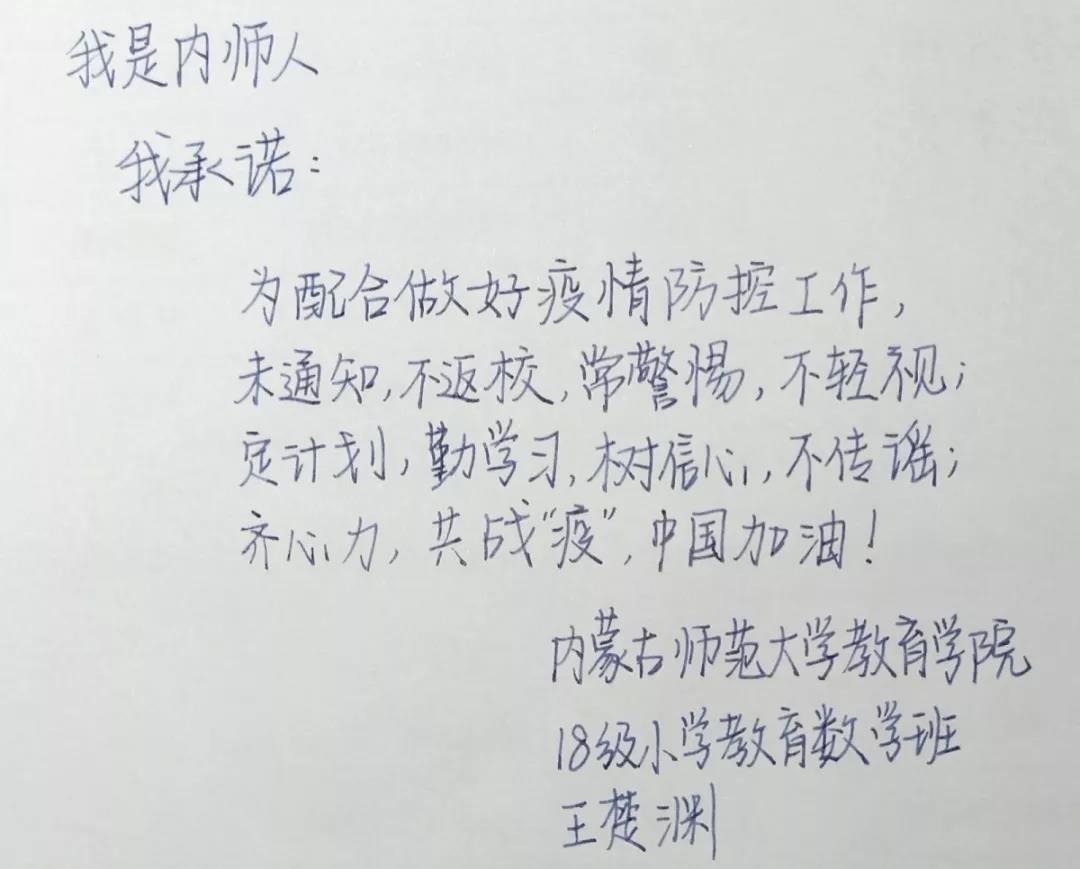 我是内师人
我承诺：
为配合做好疫情防控工作，
未通知，不返校，常警惕，不轻视；
定计划，勤学习，树信心，不传谣；
齐心力，共战“疫”，中国加油！
内蒙古师范大学教育学院
18级小学教育数学班
王楚渊